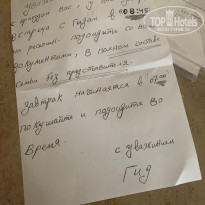 в 08:45
встреча с гидом в
на ресепшн. подойдите со
документами, в полном составе
семьи без представителя.
Завтрак начинается в 07:00,
покушайте и подойдите во
время.
с уважением
Гид
TOP HOTELS